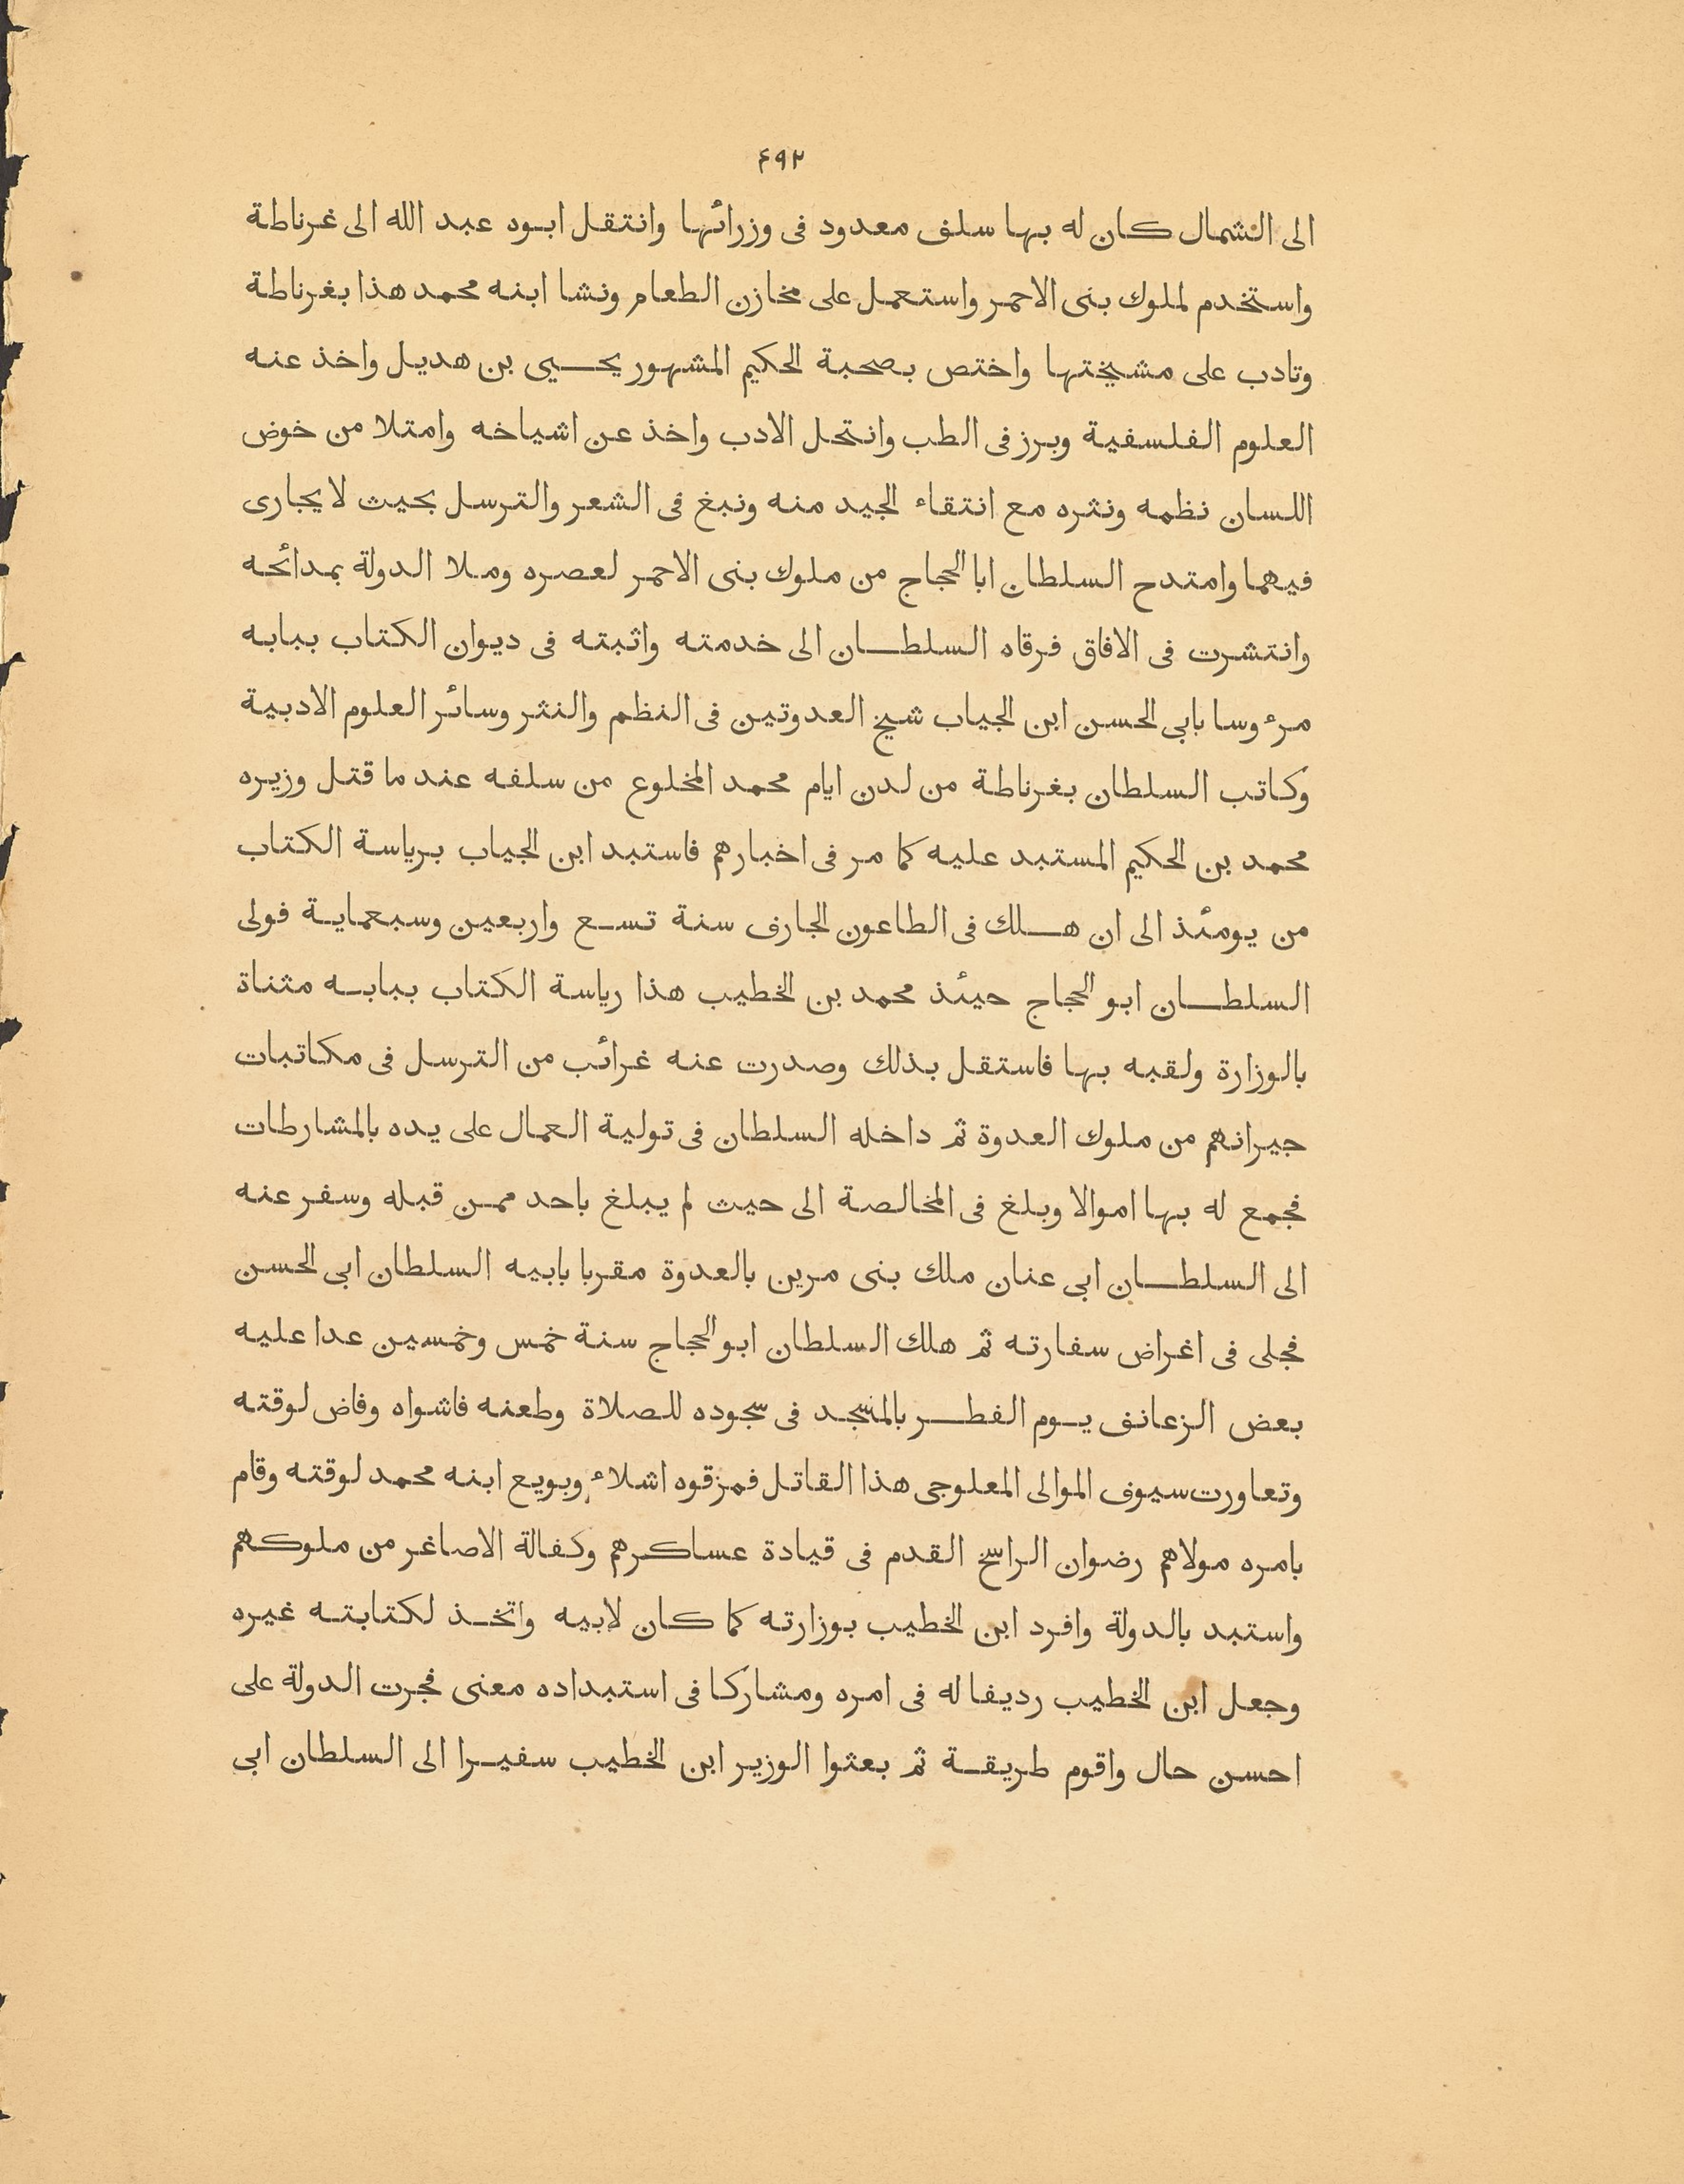 ۴۹۲
الى الشمال كان له بها سلف معدود فى وزرائها وانتقل ابوه عبد الله الى غرناطة
واستخدم لملوك بنى الاحمر واستعمل على مخازن الطعام ونشا ابنه محمد هذا بغرناطة
وتادب على مشيختها واختص بصحبة الحكيم المشهور يحيى بن هديل واخذ عنه
العلوم الفلسفية وبرز فى الطب وانتحل الادب واخذ عن اشياخه وامتلا من خوض
اللسان نظمه ونثره مع انتقاء الجيد منه ونبغ فى الشعر والترسل بحيث لا يجارى
فيهما وامتدح السلطان ابا الحجاج من ملوك بنى الاحمر لعصره وملا الدولة بمدائحه
وانتشرت فى الافاق فرقاه السلطان الى خدمته واثبته فى ديوان الكتاب ببابه
مرءوسا بابى الحسن ابن الجياب شيخ العدوتين فى النظم والنثر وسائر العلوم الادبية
وكاتب السلطان بغرناطة من لدن ايام محمد المخلوع من سلفه عند ما قتل وزيره
محمد بن الحكيم المستبد عليه كما مر فى اخبارهم فاستبد ابن الجياب برياسة الكتاب
من يومئذ الى ان هلك فى الطاعون الجارف سنة تسع واربعين وسبعماية فولى
السلطان ابو الحجاج حيئذ محمد بن الخطيب هذا رياسة الكتاب ببابه مثناة
بالوزارة ولقبه بها فاستقل بذلك وصدرت عنه غرائب من الترسل فى مكاتبات
جيرانهم من ملوك العدوة ثم داخله السلطان فى تولية العمال على يده بالمشارطات
فجمع له بها اموالا وبلغ فى المخالصة الى حيث لم يبلغ باحد ممن قبله وسفر عنه
الى السلطان ابى عنان ملك بنى مرين بالعدوة مقربا بابيه السلطان ابى الحسن
فجلى فى اغراض سفارته ثم هلك السلطان ابو الحجاج سنة خمس وخمسين عدا عليه
بعض الزعانف يوم الفطر بالمسجد فى سجوده للصلاة وطعنه فاشواه وفاض لوقته
وتعاورت سيوف الموالى المعلوجى هذا القاتل فمزقوه اشلاء وبويع ابنه محمد لوقته وقام
بامره مولاهم رضوان الراسخ القدم فى قيادة عساكرهم وكفالة الاصاغر من ملوكهم
واستبد بالدولة وافرد ابن الخطيب بوزارته كما كان لابيه واتخذ لكتابته غيره
وجعل ابن الخطيب رديفا له فى امره ومشاركا فى استبداده معنى فجرت الدولة على
احسن حال واقوم طريقة ثم بعثوا الوزير ابن الخطيب سفيرا الى السلطان ابى